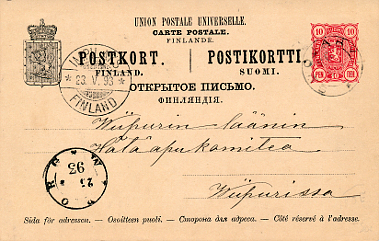 UNION POSTALE UNIVERSELLE.
CARTE POSTALE.
FINLANDE.
POSTKORT. POSTIKORTTI.
FINLAND. SUOMI.
ОТКРЫТОЕ ПИСЬМО.
ФИНЛЯНДІЯ.
10 10
10 PEN 10
23. V. 93
FINLAND
Wiipurin läänin
Hätäapukomitea
Wiipurissa
93
Sida för adressen. — Osoitteen puoli. — Сторона для адреса. — Côté réservé à l'adresse.